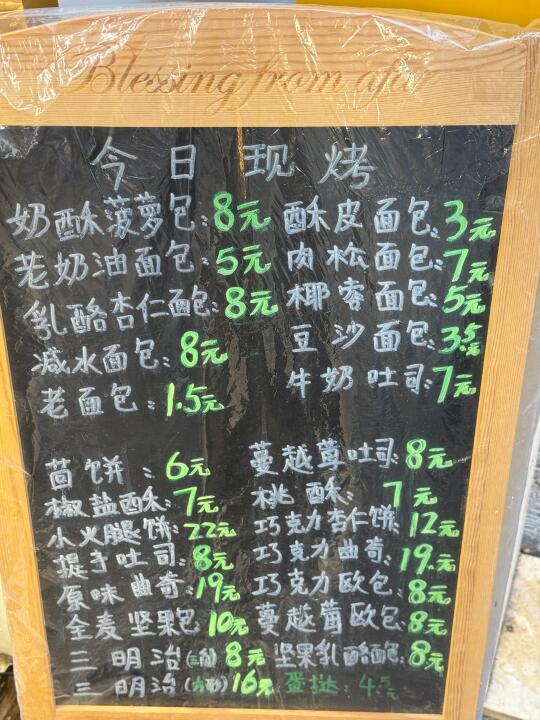 Blessing from afar
今日现烤
奶酥菠萝包:8元 酥皮面包:3元
老奶油面包:5元 肉松面包:7元
乳酪杏仁面包:8元 椰蓉面包:5元
减水面包:8元 豆沙面包:3.5元
老面包:1.5元 牛奶吐司:7元
茴饼:6元 蔓越莓吐司:8元
椒盐酥:7元 桃酥:7元
小火腿饼:22元 巧克力杏仁饼:12元
提手吐司:8元 巧克力曲奇:19元
原味曲奇:19元 巧克力欧包:8元
全麦坚果包10元 蔓越莓欧包:8元
三明治(三角)8元 坚果乳酪包:8元
三明治(方形)16元 蛋挞:4.5元